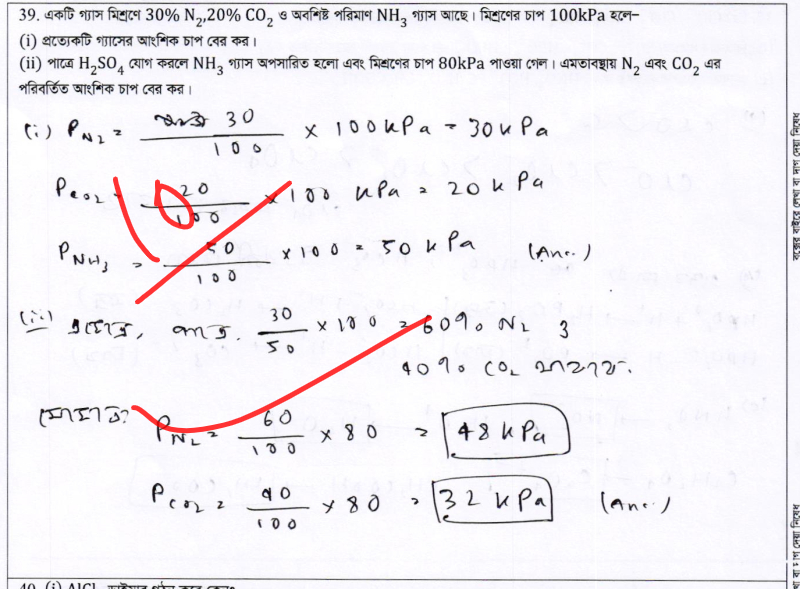 39. একটি গ্যাস মিশ্রণে 30% N₂,20% CO₂ ও অবশিষ্ট পরিমাণ NH₃ গ্যাস আছে। মিশ্রণের চাপ 100kPa হলে–
(i) প্রত্যেকটি গ্যাসের আংশিক চাপ বের কর।
(ii) পাত্রে H₂SO₄ যোগ করলে NH₃ গ্যাস অপসারিত হলো এবং মিশ্রণের চাপ 80kPa পাওয়া গেল। এমতাবস্থায় N₂ এবং CO₂ এর
পরিবর্তিত আংশিক চাপ বের কর।
(i) P_N₂ = 30/100 × 100kPa = 30kPa
P_CO₂ = 20/100 × 100 kPa = 20 kPa
P_NH₃ = 50/100 × 100 = 50 kPa (Ans.)
(ii) 30/50 × 100 = 60% N₂ ও
40% CO₂
P_N₂ = 60/100 × 80 = 48 kPa
P_CO₂ = 40/100 × 80 = 32 kPa (Ans.)
বক্সের বাইরে লেখা বা দাগ দেয়া নিষেধ